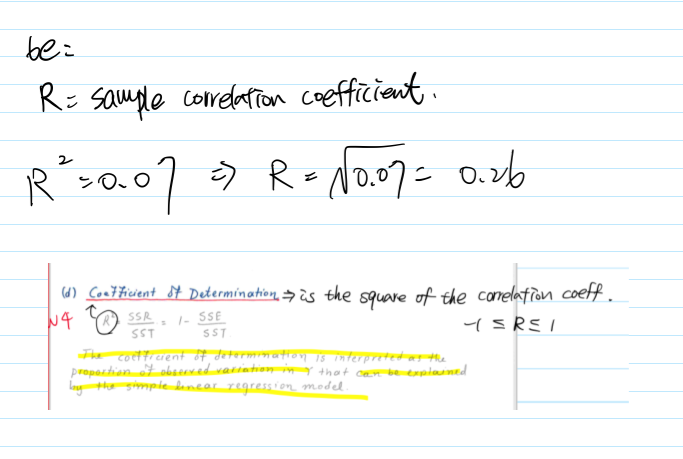 be=
R= sample correlation coefficient.
R²=0.07 ⇒ R = √0.07 = 0.26
(d) Coefficient of Determination ⇒ is the square of the correlation coeff.
N4 ↑ R² SSR/SST = 1 - SSE/SST -1 ≤ R ≤ 1
The coefficient of determination is interpreted as the
proportion of observed variation in Y that can be explained
by the simple linear regression model.